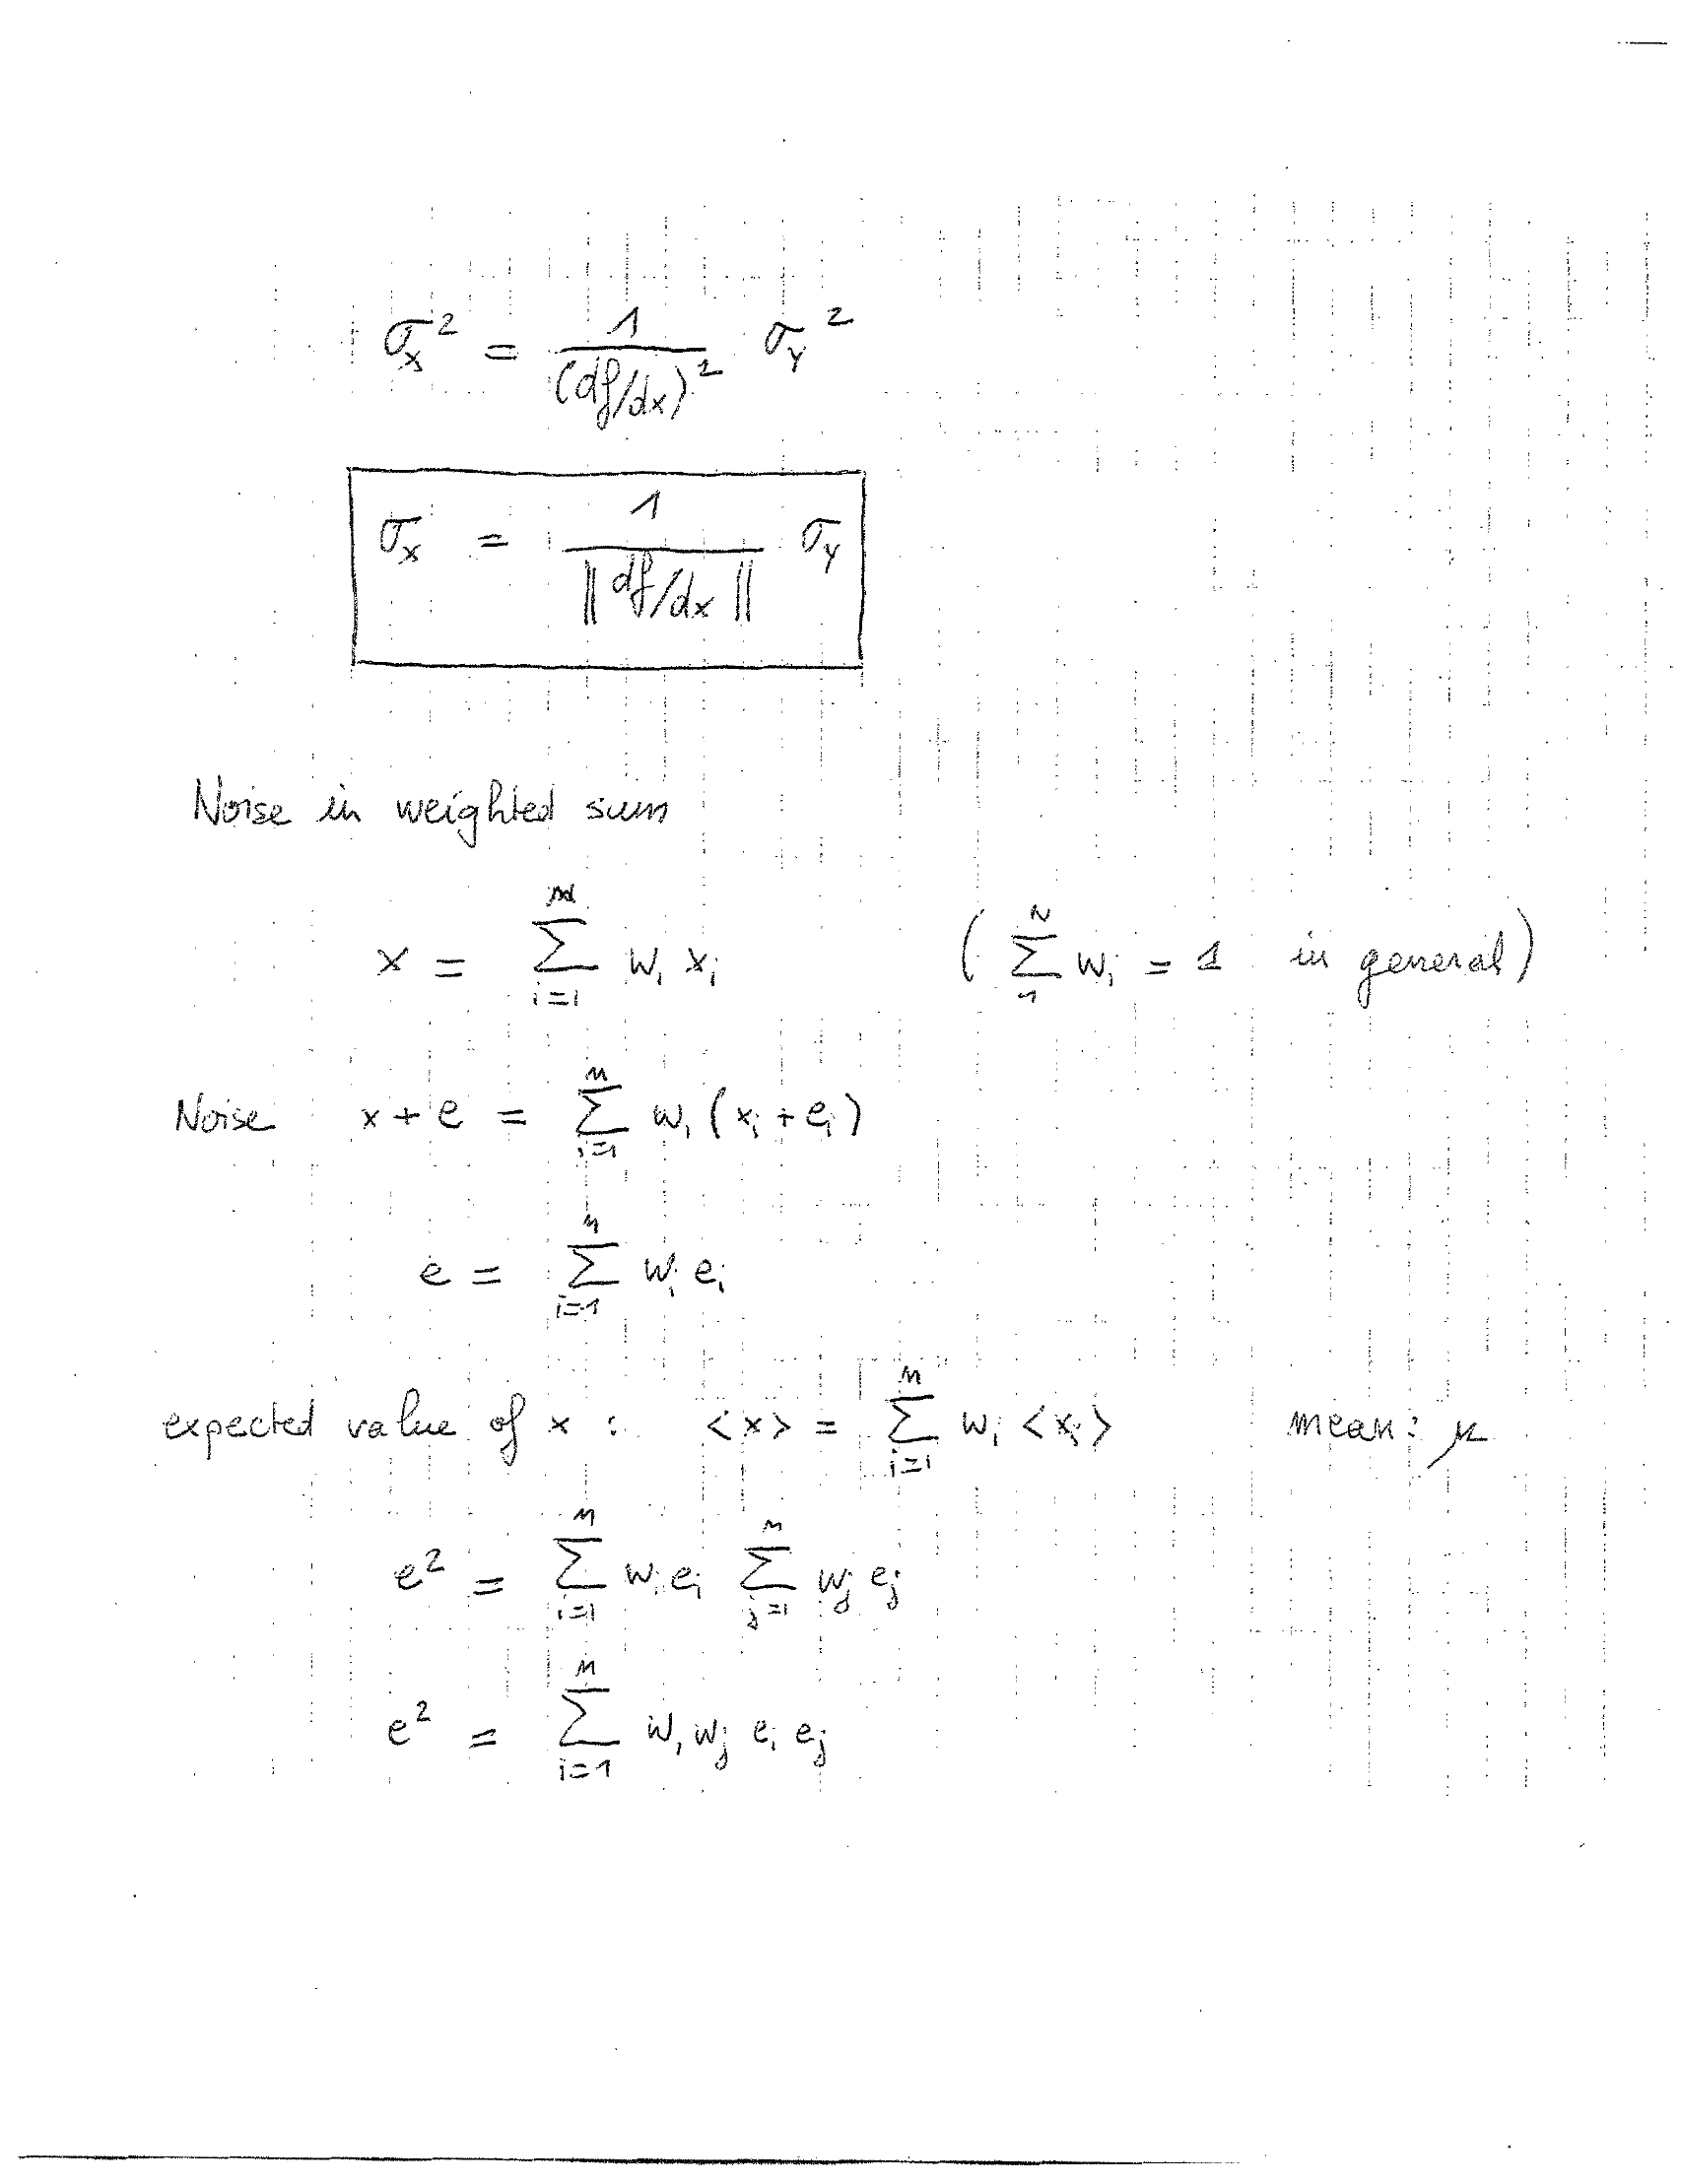 σ_x² = 1/(df/dx)² σ_y²
σ_x = 1/‖df/dx‖ σ_y
Noise in weighted sum
x = Σ_{i=i}^{n} w_i x_i ( Σ_1^N w_i = 1 in general )
Noise x + e = Σ_{i=1}^{n} w_i (x_i + e_i)
e = Σ_{i=1}^{n} w_i e_i
expected value of x : <x> = Σ_{i=i}^{n} w_i <x_i> mean: μ
e² = Σ_{i=1}^{n} w_i e_i Σ_{j=1}^{n} w_j e_j
e² = Σ_{i=1}^{n} w_i w_j e_i e_j